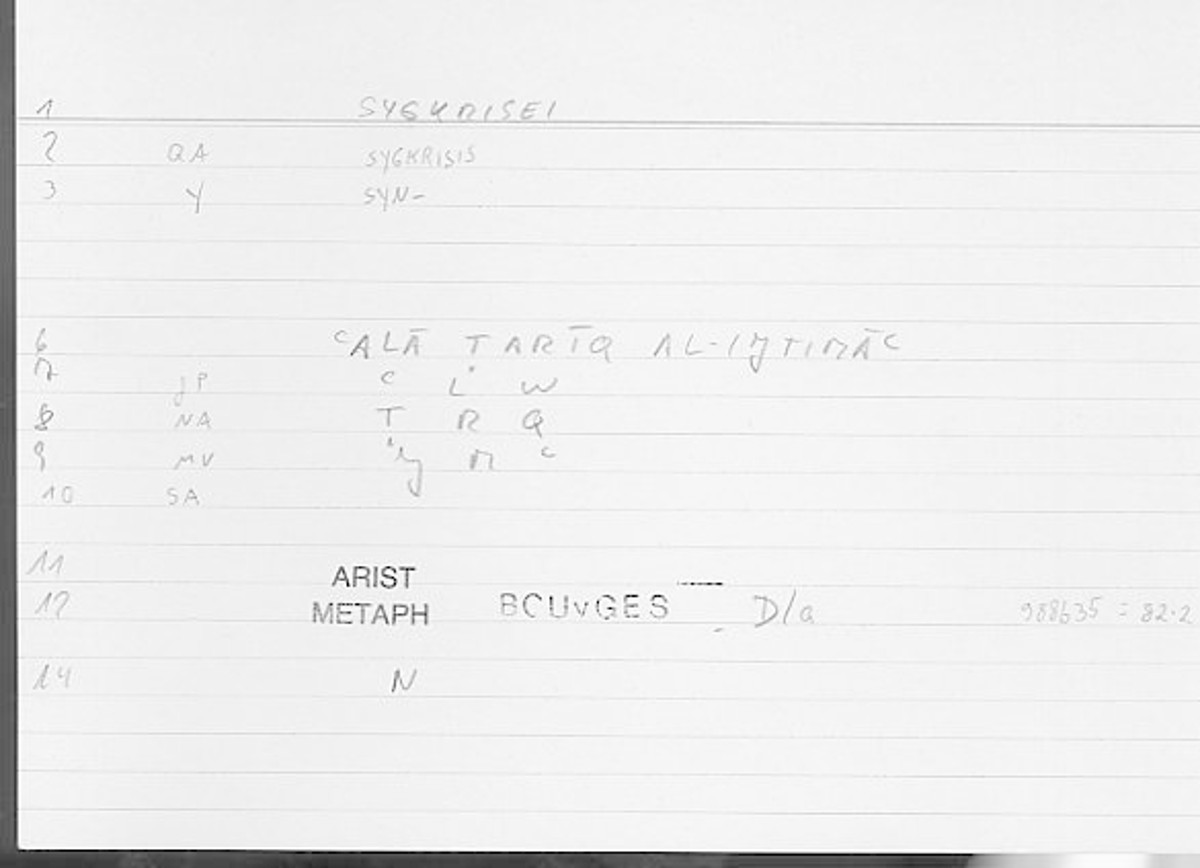 1 SYGKRISEI
2 QA SYGKRISIS
3 Y SYN-
6 ᶜALĀ ṬARĪQ AL-IJTIMĀᶜ
7 JP ᶜ L W
8 NA Ṭ R Q
9 MV J M ᶜ
10 SA
11 ARIST
12 METAPH BCUvGES D/a 988b35 = 82.2
14 N